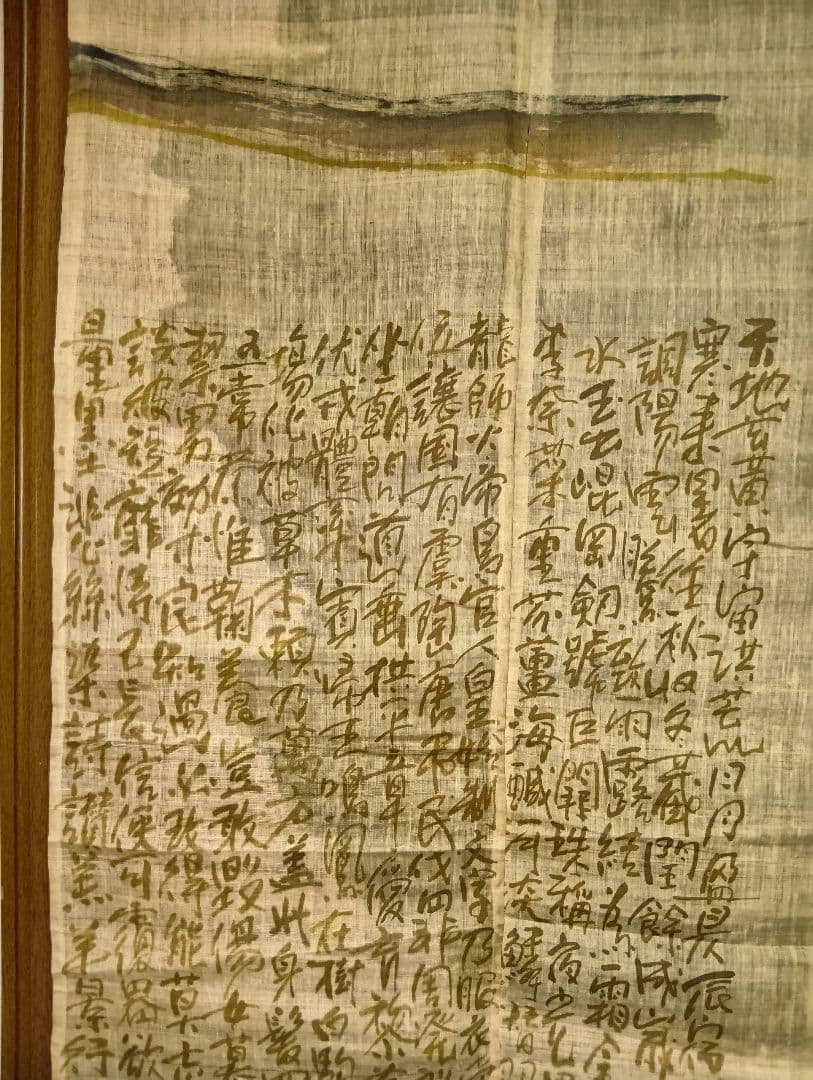 天地玄黃宇宙洪荒日月盈昃辰宿
寒来暑往秋收冬藏閏餘成歲
調陽雲騰致雨露結為霜金
水玉出崐岡劒號巨闕珠稱夜光
李柰菜重芥薑海鹹河淡鱗潛羽
龍師火帝鳥官人皇始制文字乃服衣裳
位讓国有虞陶唐弔民伐罪周發殷
坐朝問道垂拱平章愛育黎首
伏戎體率賓歸王鳴鳳在樹白駒
場化被草木賴及萬方蓋此身髮四
五常恭惟鞠養豈敢毀傷女慕
絜男効才良知過必改得能莫忘
談彼短靡恃己長信使可覆器欲
量墨悲絲染詩讚羔羊景行